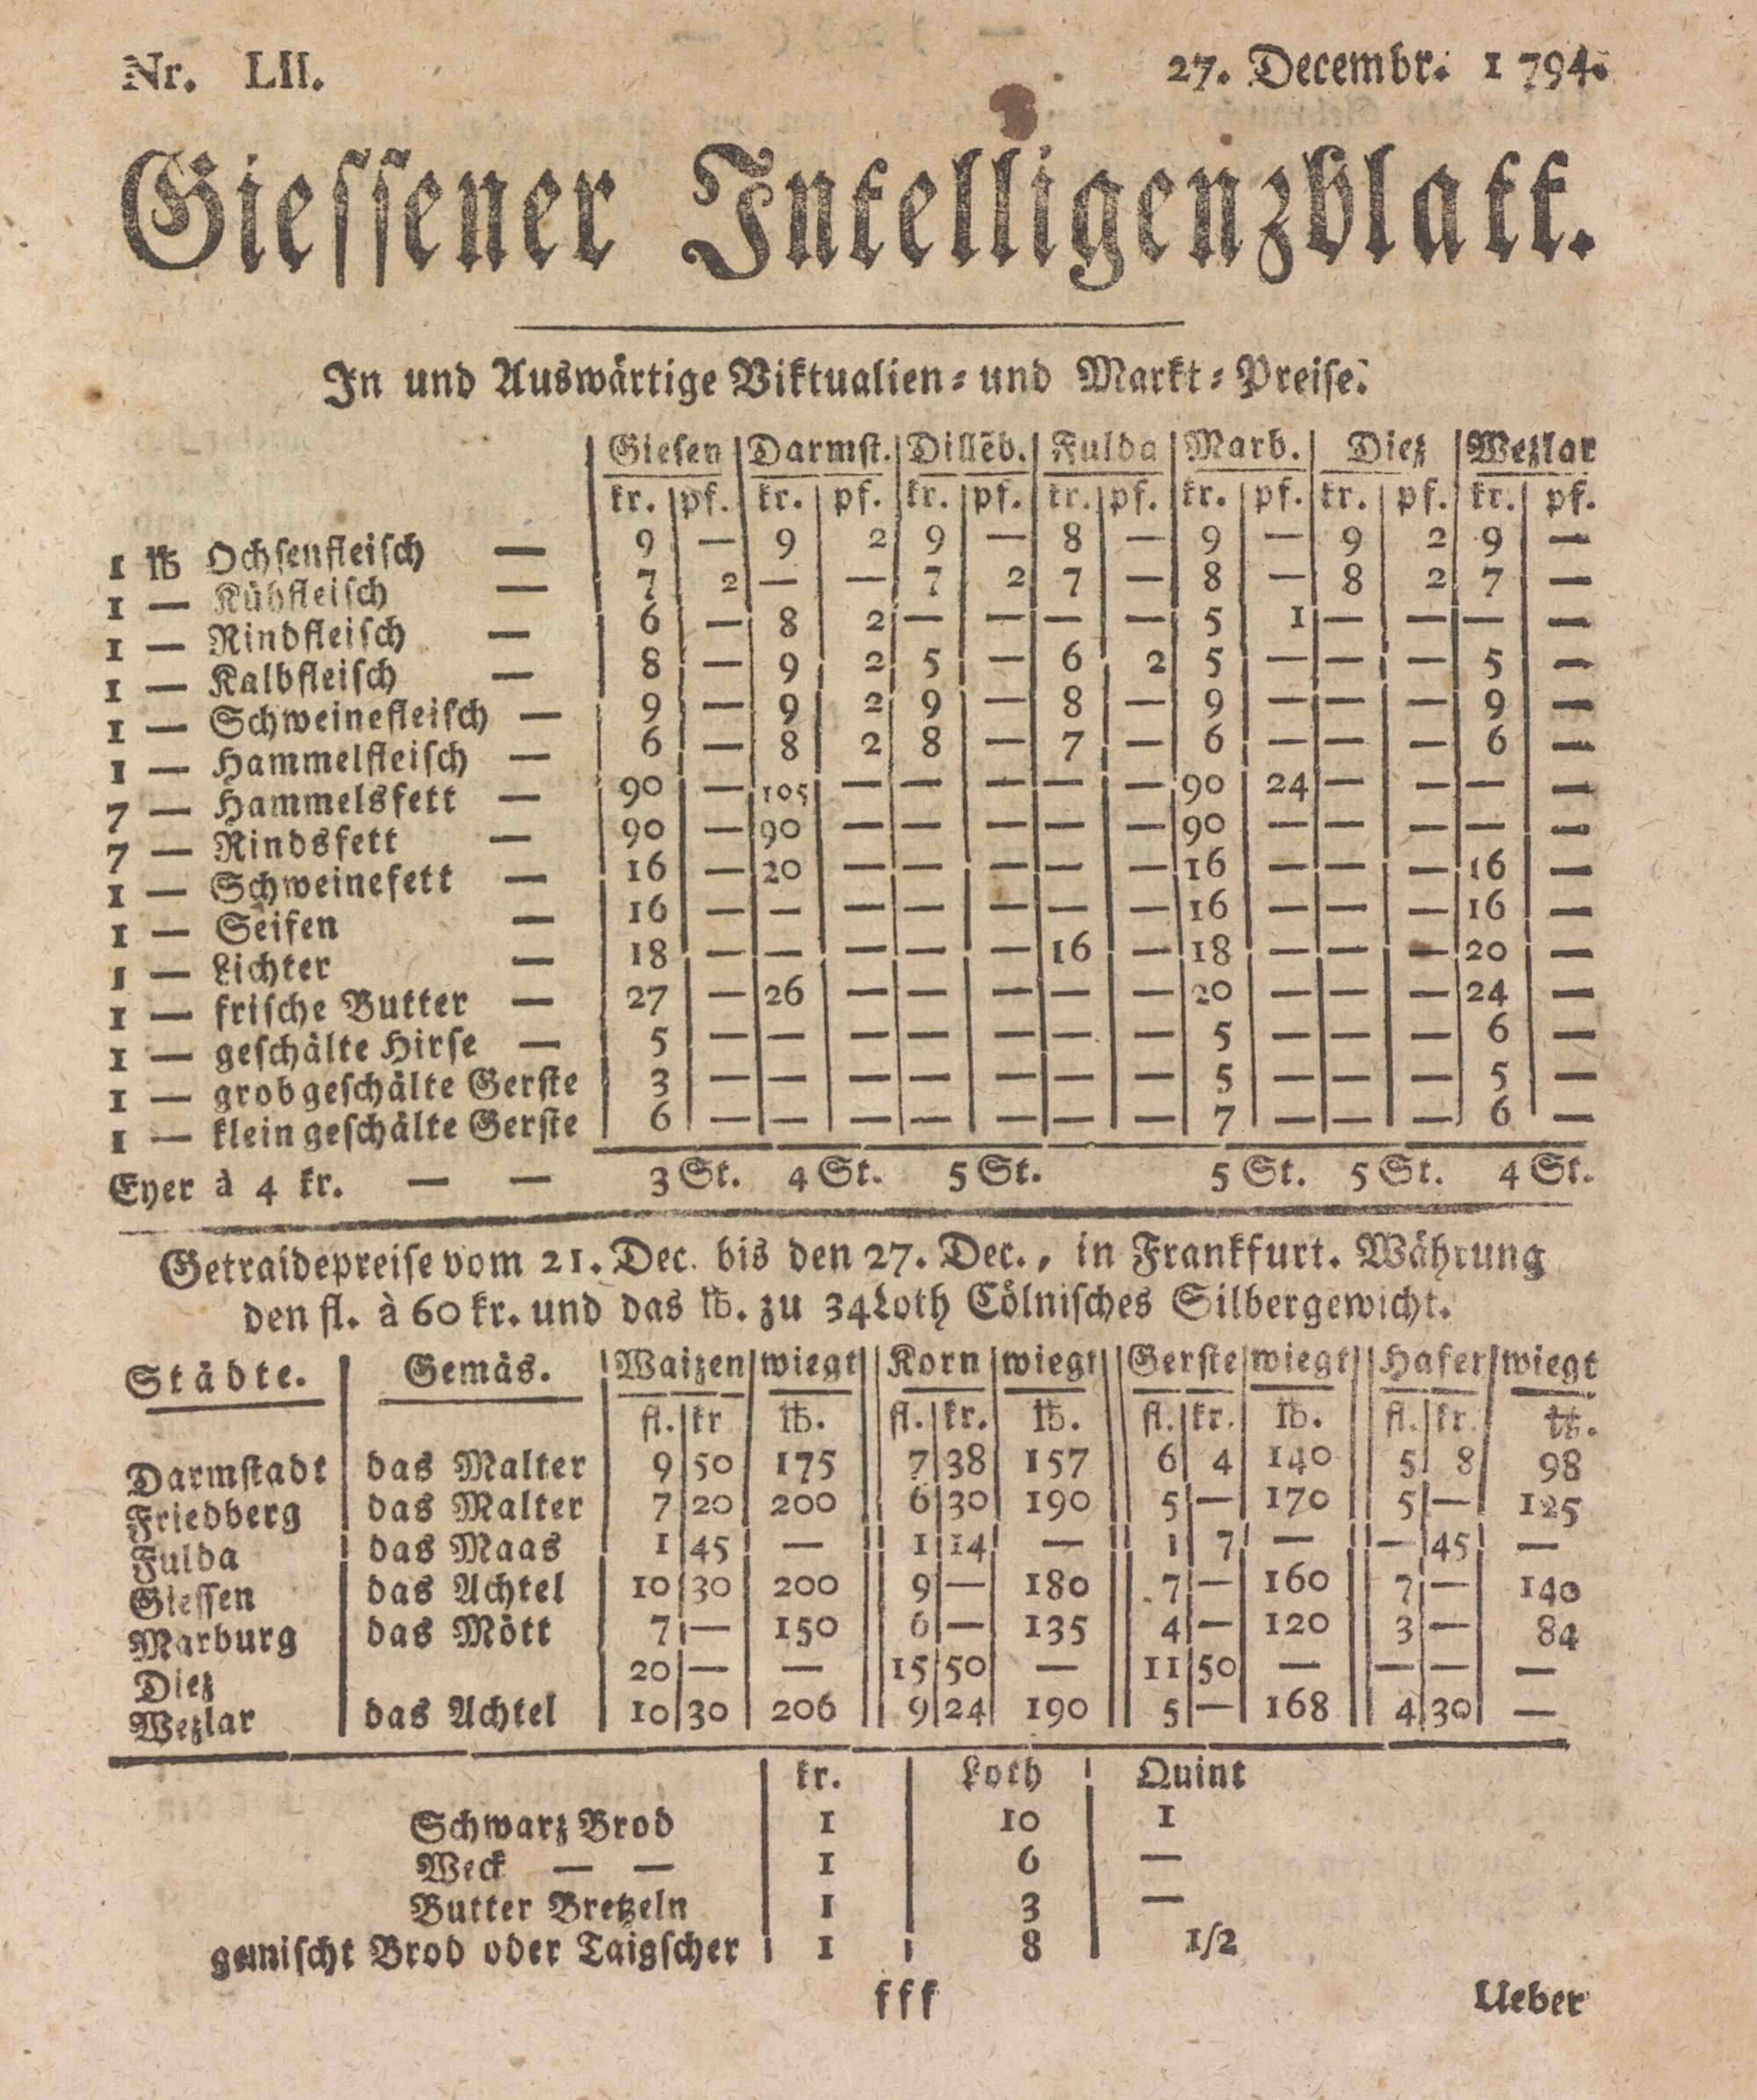 Nr. LII. 27. Decembr. 1794.
Giessener Intelligenzblatt.
In und Auswärtige Viktualien- und Markt-Preise.
Giesen Darmst. Dillēb. Fulda Marb. Diez Wezlar
kr. pf. kr. pf. kr. pf. kr. pf. kr. pf. kr. pf. kr. pf.
1 ℔ Ochsenfleisch — 9 — 9 2 9 — 8 — 9 — 9 2 9 —
1 — Kühfleisch — 7 2 — — 7 2 7 — 8 — 8 2 7 —
1 — Rindfleisch — 6 — 8 2 — — — — 5 1 — — — —
1 — Kalbfleisch — 8 — 9 2 5 — 6 2 5 — — — 5 —
1 — Schweinefleisch — 9 — 9 2 9 — 8 — 9 — — — 9 —
1 — Hammelfleisch — 6 — 8 2 8 — 7 — 6 — — — 6 —
7 — Hammelsfett — 90 — 105 — — — — — 90 24 — — — —
7 — Rindsfett — 90 — 90 — — — — — 90 — — — — —
1 — Schweinefett — 16 — 20 — — — — — 16 — — — 16 —
1 — Seifen — 16 — — — — — — — 16 — — — 16 —
1 — Lichter — 18 — — — — — 16 — 18 — — — 20 —
1 — frische Butter — 27 — 26 — — — — — 20 — — — 24 —
1 — geschälte Hirse — 5 — — — — — — — 5 — — — 6 —
1 — grob geschälte Gerste 3 — — — — — — — 5 — — — 5 —
1 — klein geschälte Gerste 6 — — — — — — — 7 — — — 6 —
Eyer à 4 kr. — — 3 St. 4 St. 5 St. 5 St. 5 St. 4 St.
Getraidepreise vom 21. Dec. bis den 27. Dec., in Frankfurt. Währung
den fl. à 60 kr. und das ℔. zu 34 Loth Cölnisches Silbergewicht.
Städte. Gemäs. Waizen wiegt Korn wiegt Gerste wiegt Hafer wiegt
fl. kr ℔. fl. kr. ℔. fl. kr. ℔. fl. kr. ℔.
Darmstadt das Malter 9 50 175 7 38 157 6 4 140 5 8 98
Friedberg das Malter 7 20 200 6 30 190 5 — 170 5 — 125
Fulda das Maas 1 45 — 1 14 — 1 7 — — 45 —
Giessen das Achtel 10 30 200 9 — 180 7 — 160 7 — 140
Marburg das Mött 7 — 150 6 — 135 4 — 120 3 — 84
Diez 20 — — 15 50 — 11 50 — — — —
Wezlar das Achtel 10 30 206 9 24 190 5 — 168 4 30 —
kr. Loth Quint
Schwarz Brod 1 10 1
Weck — — 1 6 —
Butter Bretzeln 1 3 —
gemischt Brod oder Taigscher 1 8 1/2
fff Ueber